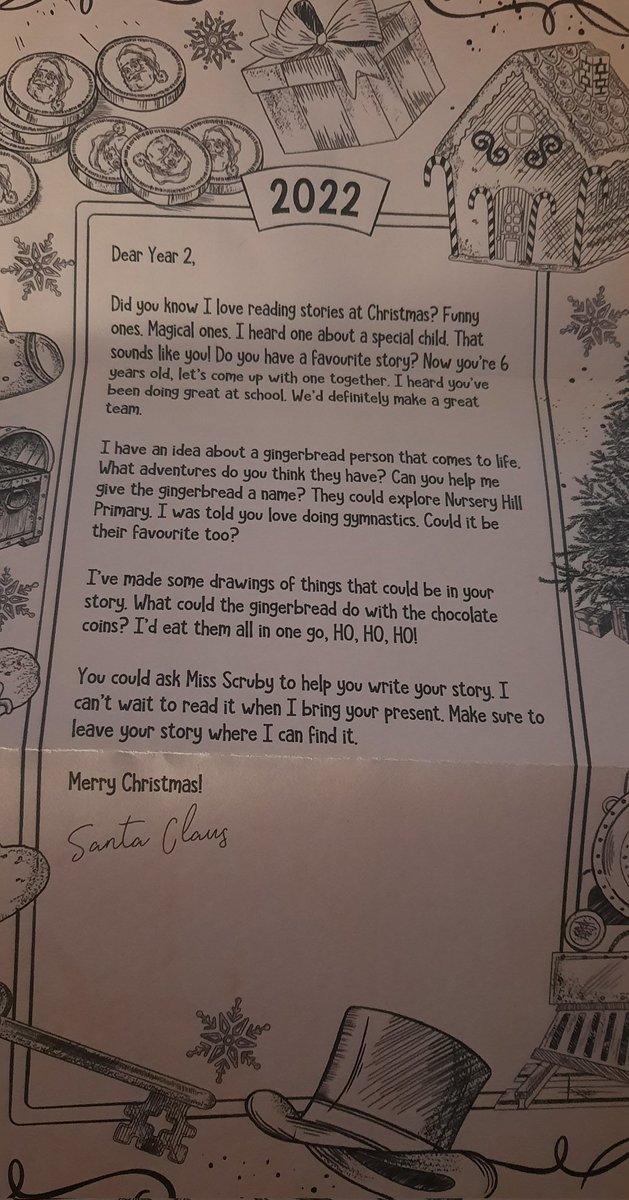 2022
Dear Year 2,
Did you know I love reading stories at Christmas? Funny
ones. Magical ones. I heard one about a special child. That
sounds like you! Do you have a favourite story? Now you're 6
years old, let's come up with one together. I heard you've
been doing great at school. We'd definitely make a great
team.
I have an idea about a gingerbread person that comes to life.
What adventures do you think they have? Can you help me
give the gingerbread a name? They could explore Nursery Hill
Primary. I was told you love doing gymnastics. Could it be
their favourite too?
I've made some drawings of things that could be in your
story. What could the gingerbread do with the chocolate
coins? I'd eat them all in one go, HO, HO, HO!
You could ask Miss Scruby to help you write your story. I
can't wait to read it when I bring your present. Make sure to
leave your story where I can find it.
Merry Christmas!
Santa Claus